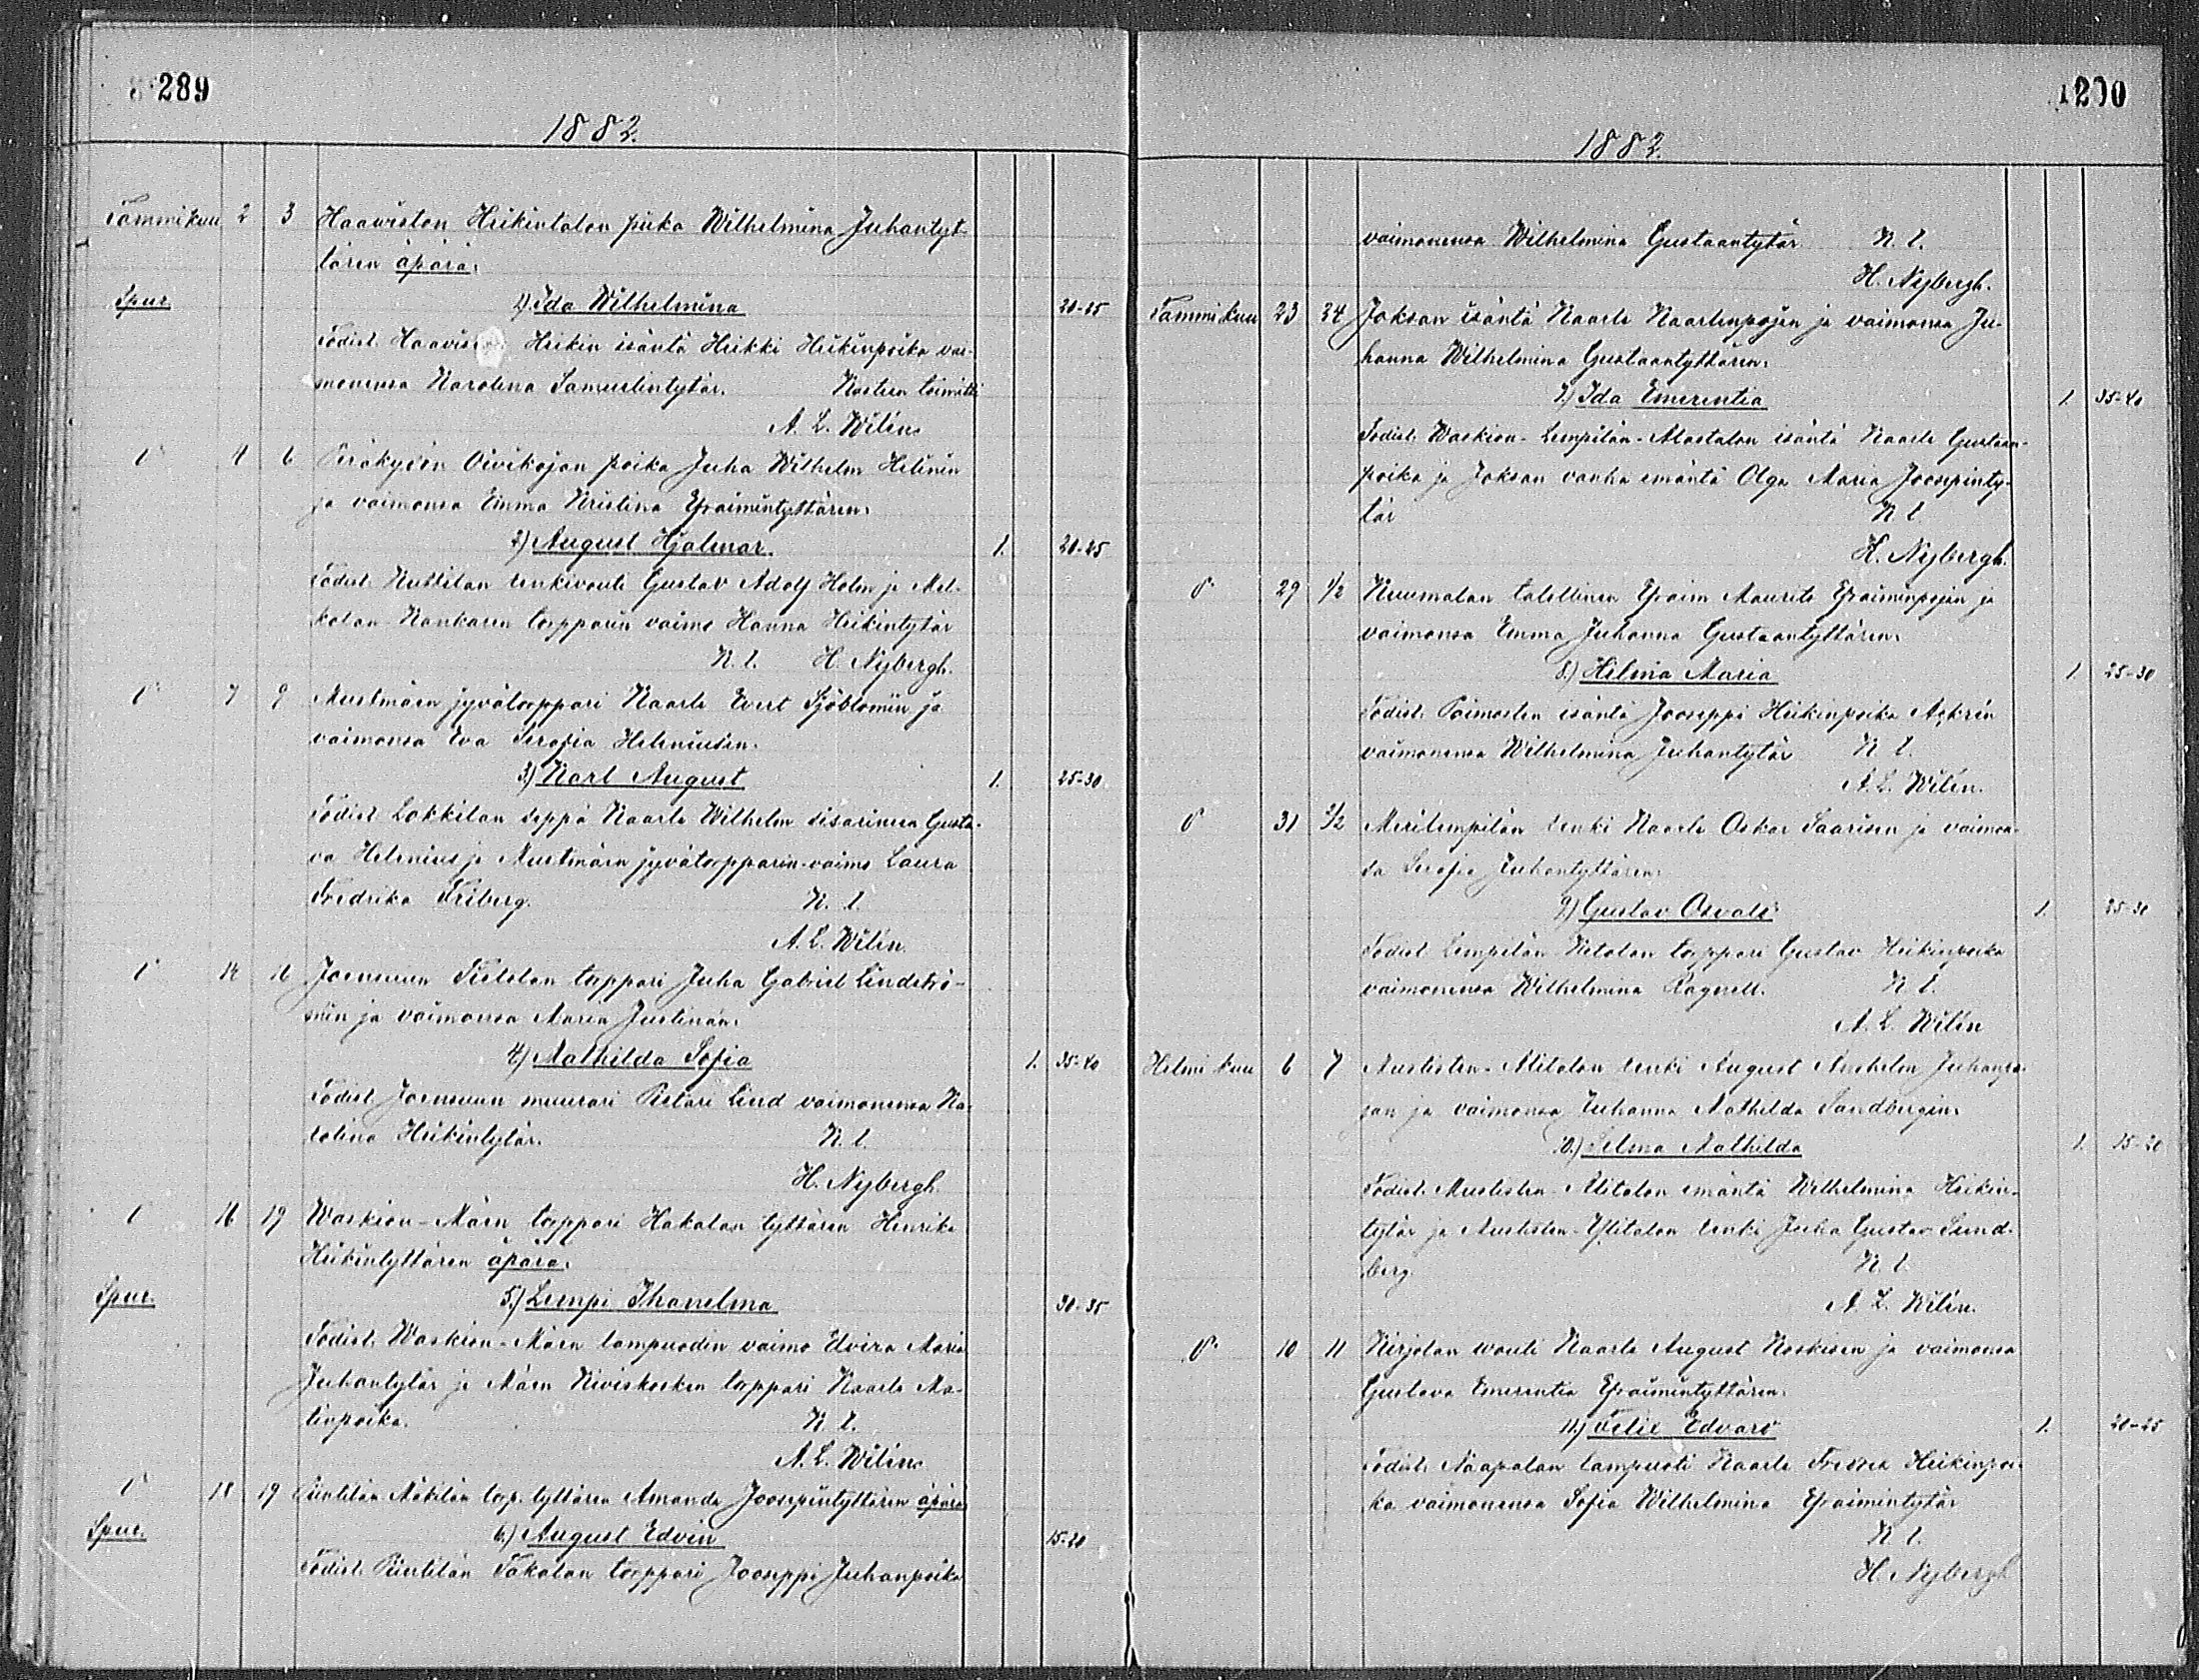 289
1882.
Tammikuu 2 3 Haaviston Heikintalon piika Wilhelmina Juhantyt-
tären äpärä.
Spur. 1) Ida Wilhelmina 20-25
Todist. Heikin isäntä Heikki Heikinpoika vai-
monensa Karolina Samuelintytär. Kasteen toimitti
A. L. Wilén.
4 6 Peräkylän Oivikojan poika Juha Wilhelm Helinin
ja vaimonsa Emma Kristina Efraimintyttären.
2) August Hjalmar. 1. 20-25
Todist. renkivouti Gustav Adolf Holm ja Mel-
kolan Kankaren torpparin vaimo Hanna Heikintytär
K. t. H. Nybergh.
7 9 Mustmäen jyvätorppari Kaarle Evert Sjöblomin ja
vaimonsa Eva Serafia Heleniusen.
3) Karl August 1. 25-30
Todist. Lokkilan seppä Kaarle Wilhelm sisarinensa Gusta-
va Helenius ja Mustmäen jyvätorpparin-vaimo Laura
Fredrika Friberg. K. t.
A. L. Wilén.
14 16 Joensuun torppari Juha Gabriel Lindströ-
min ja vaimonsa Maria Justinan.
4) Mathilda Sofia 1. 35-40
Todist. Joensuun muurari Pietari Lind vaimonensa Ka-
rolina Heikintytär. K. t.
H. Nybergh.
16 19 Waskion-Mäen torppari Hakalan tyttären Henrika
Heikintyttären äpärä.
Spur. 5.) Lempi Ihanelma 30-35
Todist. Waskion-Mäen lampuodin vaimo Elvira Maria
Juhantytär ja Mäen Kiviskosken torppari Kaarle Ma-
tinpoika. K. t.
A. L. Wilén.
18 19 Mäkilän torp. tyttären Amanda Joosepintyttären äpärä
Spur. 6.) August Edvin 15-20
Todist. torppari Jooseppi Juhanpoika
1200
1882.
vaimonensa Wilhelmina Gustaantytär K. t.
H. Nybergh.
Tammikuu 23 24 Joksan isäntä Kaarle Kaarlenpojan ja vaimonsa Ju-
hanna Wilhelmina Gustaantyttären.
7.) Ida Emerentia 1. 35-40
Todist. Waskion-Lempilän-Alastalon isäntä Kaarle Gustaan-
poika ja Joksan vanha emäntä Olga Maria Joosepinty-
tär K. t.
H. Nybergh.
29 1/2 Kuumolan talollinen Efraim Maurits Efraiminpojan ja
vaimonsa Emma Juhanna Gustaantyttären.
8.) Hilma Maria 1. 25-30
Todist. isäntä Jooseppi Heikinpoika
vaimonensa Wilhelmina Juhantytär K. t.
A. L. Wilén.
31 2/2 Merilempilän renki Kaarle Oskar Saarisen ja vaimon-
sa Serafia Juhantyttären.
9) Gustav Osvald 1. 25-30
Todist. Lempilän torppari Gustav Heikinpoika
vaimonensa Wilhelmina Ragnell. K. t.
A. L. Wilén
Helmikuu 6 7 Mustisten-Alitalon renki August Juhanpo-
jan ja vaimonsa Juhanna Mathilda Sandbergin.
10.) Selma Mathilda 1. 15-20
Todist. Mustisten-Alitalon emäntä Wilhelmina Heikin-
tytär ja Mustisten-Ylitalon renki Juha Gustav Sund-
berg. K. t.
A. L. Wilén.
10 11 Kirjolan wouti Kaarle August Koskisen ja vaimonsa
Gustava Emerentia Efraimintyttären.
11.) Felix Edvard 1. 20-25
Todist. Näapalan lampuoti Kaarle Heikinpoi-
ka vaimonensa Sofia Wilhelmina Efraimintytär
K. t.
H. Nybergh